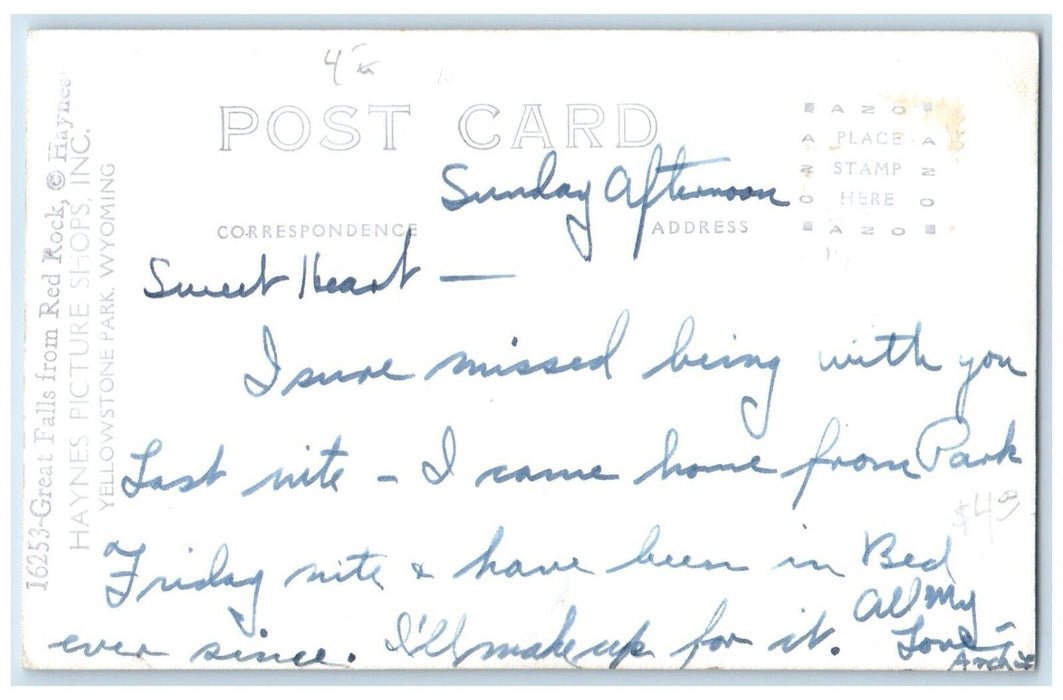 POST CARD
AZO
PLACE
STAMP
HERE
AZO
CORRESPONDENCE
ADDRESS
16253-Great Falls from Red Rock, © Haynes
HAYNES PICTURE SHOPS, INC.
YELLOWSTONE PARK, WYOMING
Sunday Afternoon
Sweet Heart —
I sure missed being with you
Last nite - I came home from Park
$4
Friday nite & have been in Bed
ever since. I'll make up for it.
All My
Love -
Archie